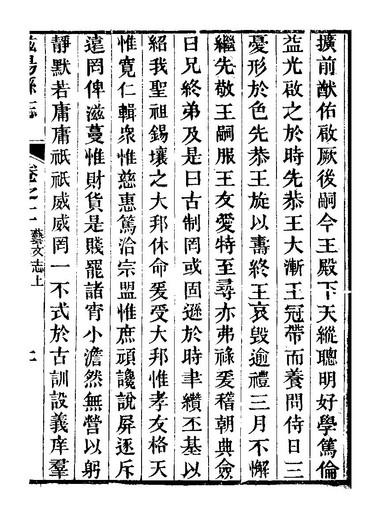 擴前猷佑啟厥後嗣今王殿下天縱聰明好學篤倫
益光啟之於時先恭王大漸王冠帶而養問侍日三
憂形於色先恭王旋以壽終王哀毀逾禮三月不懈
繼先敬王嗣服王友愛特至尋亦弗祿爰稽朝典僉
曰兄終弟及是曰古制罔或固遜於時聿纘丕基以
紹我聖祖錫壤之大邦休命爰受大邦惟孝友格天
惟寬仁輯衆惟慈惠篤洽宗盟惟庶頑讒說屏逐斥
遠罔俾滋蔓惟財貨是賤罷諸宵小澹然無營以躬
靜默若庸庸祗祗威威罔一不式於古訓設義庠羣
滋陽縣志 卷之十 藝文志上